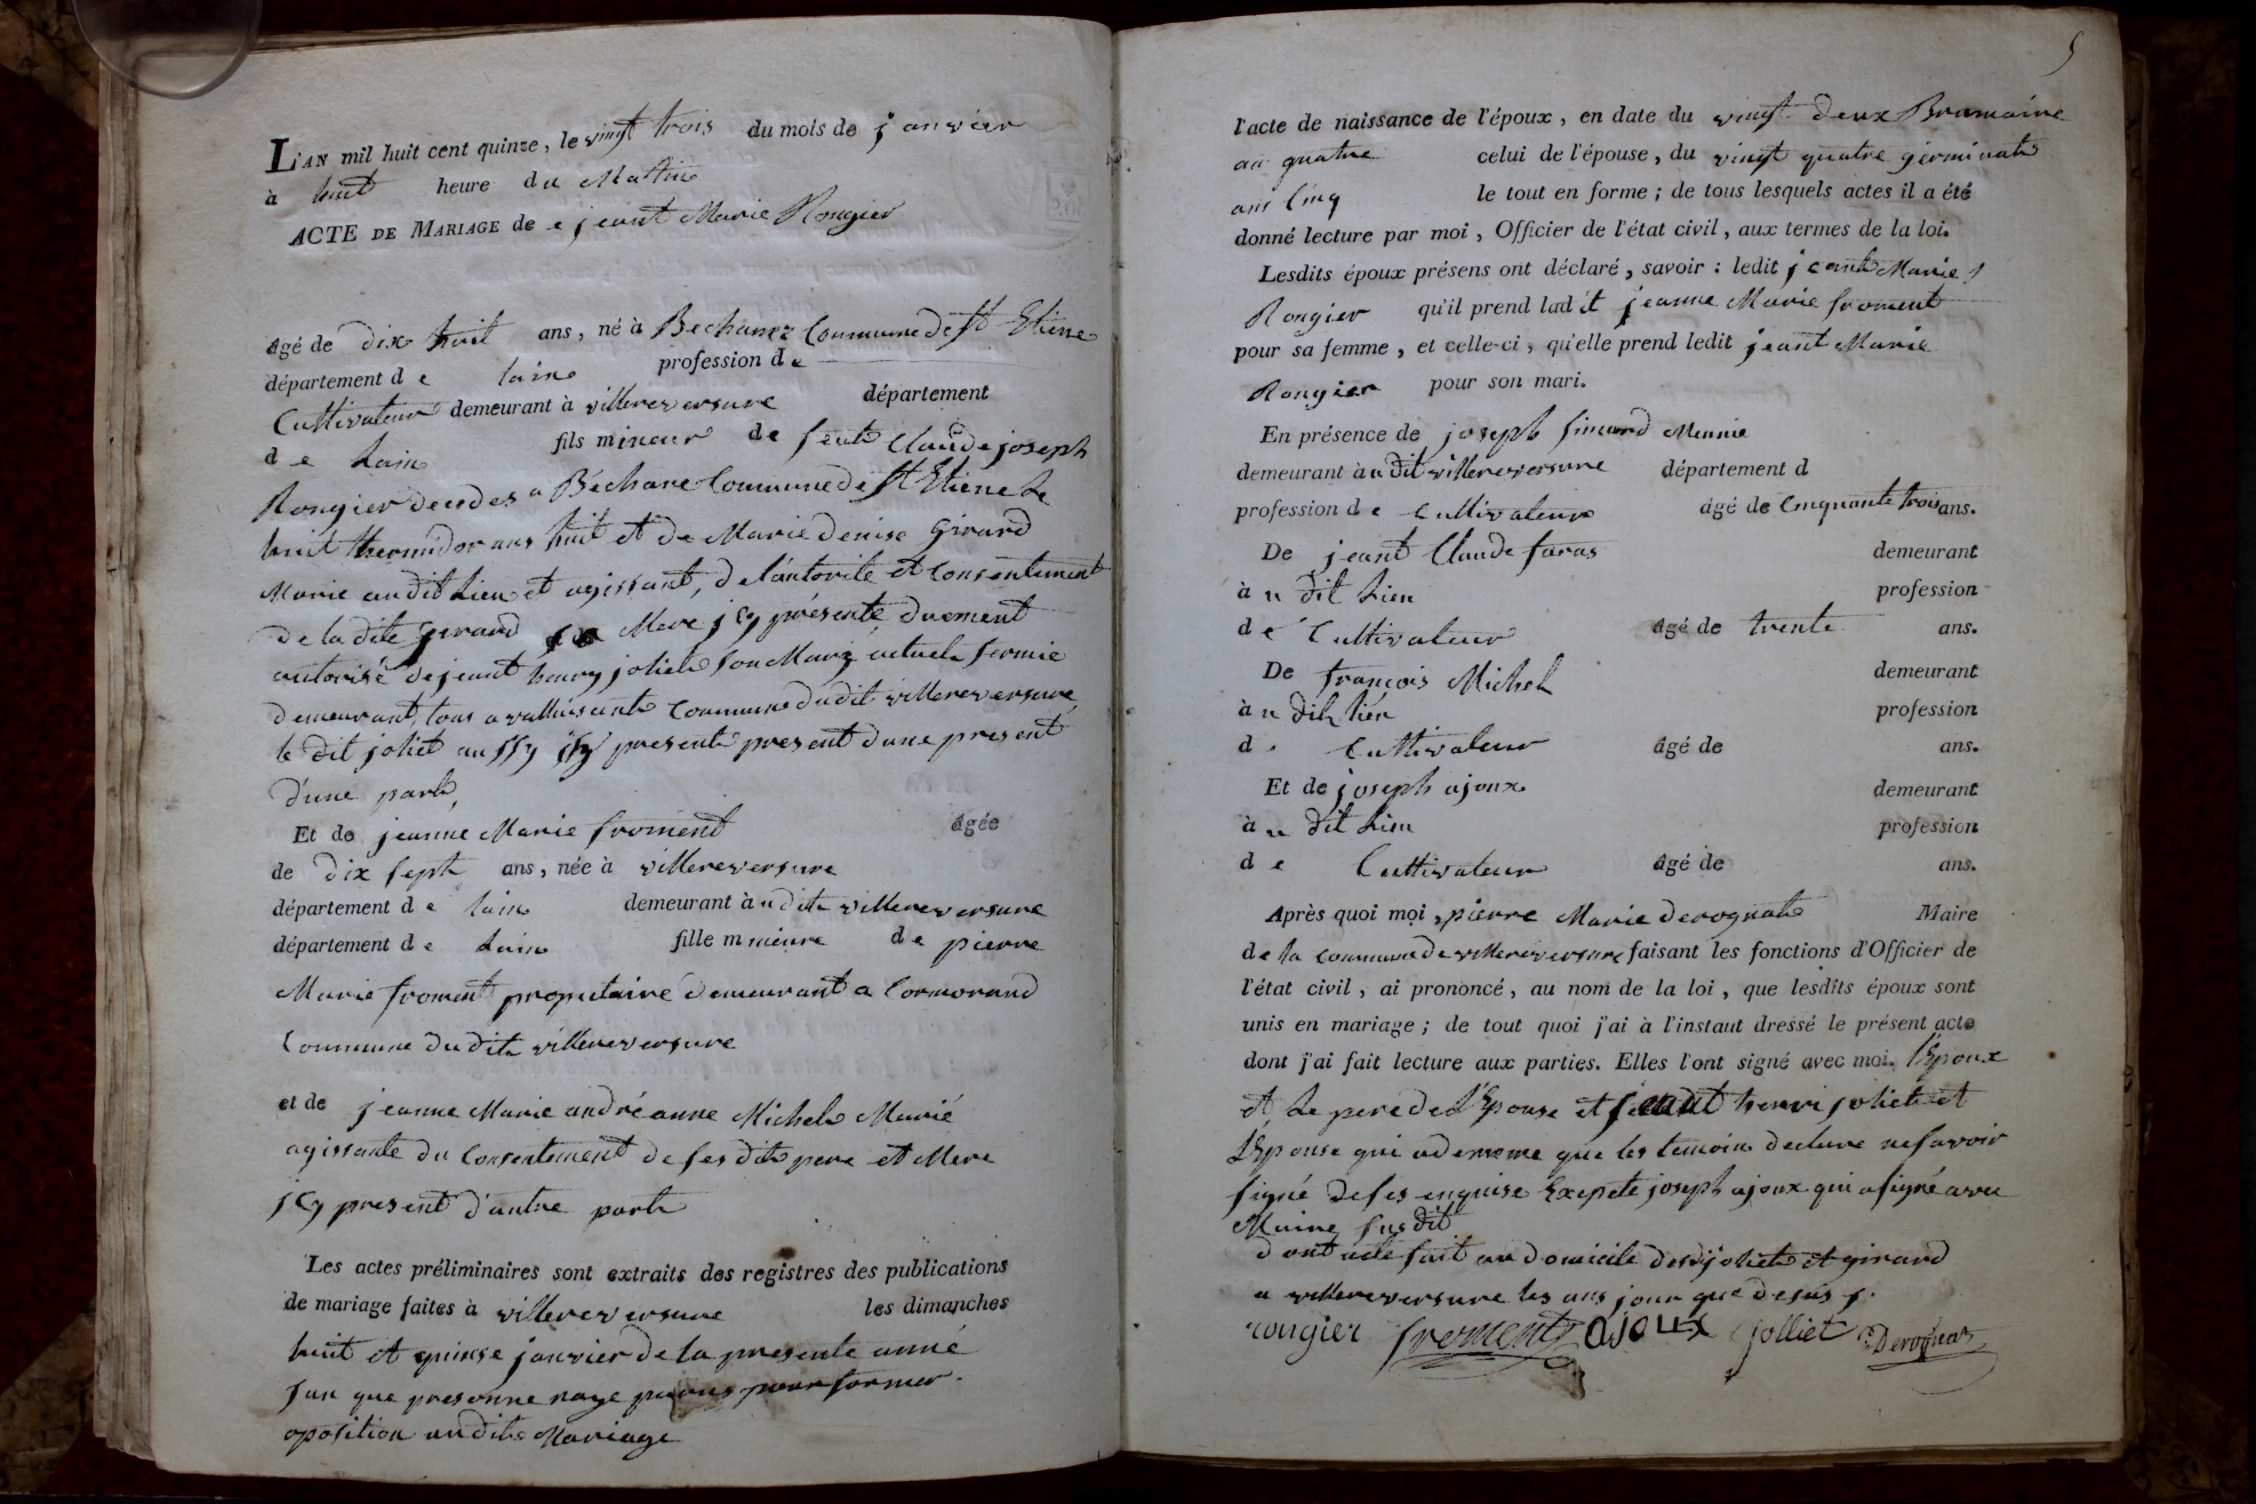 L'AN mil huit cent quinze, le vingt trois du mois de janvier
à huit heure du Matin
ACTE DE MARIAGE de e jeant Marie Rougier
âgé de dix huit ans, né à Bechanez Commune de St Etiene
département d e lain profession d e
Cultivateur demeurant à villereversure département
d e Lain fils mineur de feut Claude joseph
Rougier decedes a Béchane Commune de St Etiene Le
huit thermidor ans huit et de Marie denise Girard
Marie audit Lieu et agissant, de l'autorite et Consentement
de la dite Girard sa Mere jcy présente duement
autorisé de jeant henry joliet son Mary actuel fermie
demeurant, tous a valluisant Commune dudit villereversure
le dit joliet aussy jsy present present dune present
d'une part,
Et de jeanne Marie froment âgée
de dix sept ans, née à villereversure
département d e lain demeurant à u dit villereversure
département d e Lain fille m mieure de pierre
Marie froment propietaire demeurant a Cormorand
Commune dudit villereversure
et de jeanne Marie andré anne Michel Marié
agissante du Consentement de ses dit pere et Mere
jcy present d'autre part
Les actes préliminaires sont extraits des registres des publications
de mariage faites à villereversure les dimanches
huit et quinse janvier de la presente anné
san que presonne naye pour former
oposition audit Mariage
5
l'acte de naissance de l'époux, en date du vingt deux Brumaire
an quatre celui de l'épouse, du vingt quatre germinal
ans Cinq le tout en forme; de tous lesquels actes il a été
donné lecture par moi, Officier de l'état civil, aux termes de la loi.
Lesdits époux présens ont déclaré, savoir: ledit jeant Marie
Rougier qu'il prend lad it jeanne Marie froment
pour sa femme, et celle-ci, qu'elle prend ledit jeant Marie
Rougier pour son mari.
En présence de joseph simard Meunie
demeurant à u dit villereversure département d
profession d e Cultivateur âgé de Cinquante trois ans.
De jeant Claude faras demeurant
à u dit Lieu profession
d e Cultivateur âgé de trente ans.
De françois Michel demeurant
à u dit lieu profession
d e Cultivateur âgé de ans.
Et de joseph ajoux demeurant
à u dit Lieu profession
d e Cultivateur âgé de ans.
Après quoi moi, pierre Marie derognat Maire
de la commune de villereversure faisant les fonctions d'Officier de
l'état civil, ai prononcé, au nom de la loi, que lesdits époux sont
unis en mariage; de tout quoi j'ai à l'instant dressé le présent acte
dont j'ai fait lecture aux parties. Elles l'ont signé avec moi. l'Epoux
et Le pere de L'Epouse et jeant henri joliet et
L'Epouse qui a de meme que les temoins declare ne savoir
signé de ses enquise Exepete joseph ajoux qui a signé avec
Maire susdit
dont acte fait au domicile desd joliet et girard
a villereversure les ans jour que desus
rougier froment ajoux jolliet Derognat